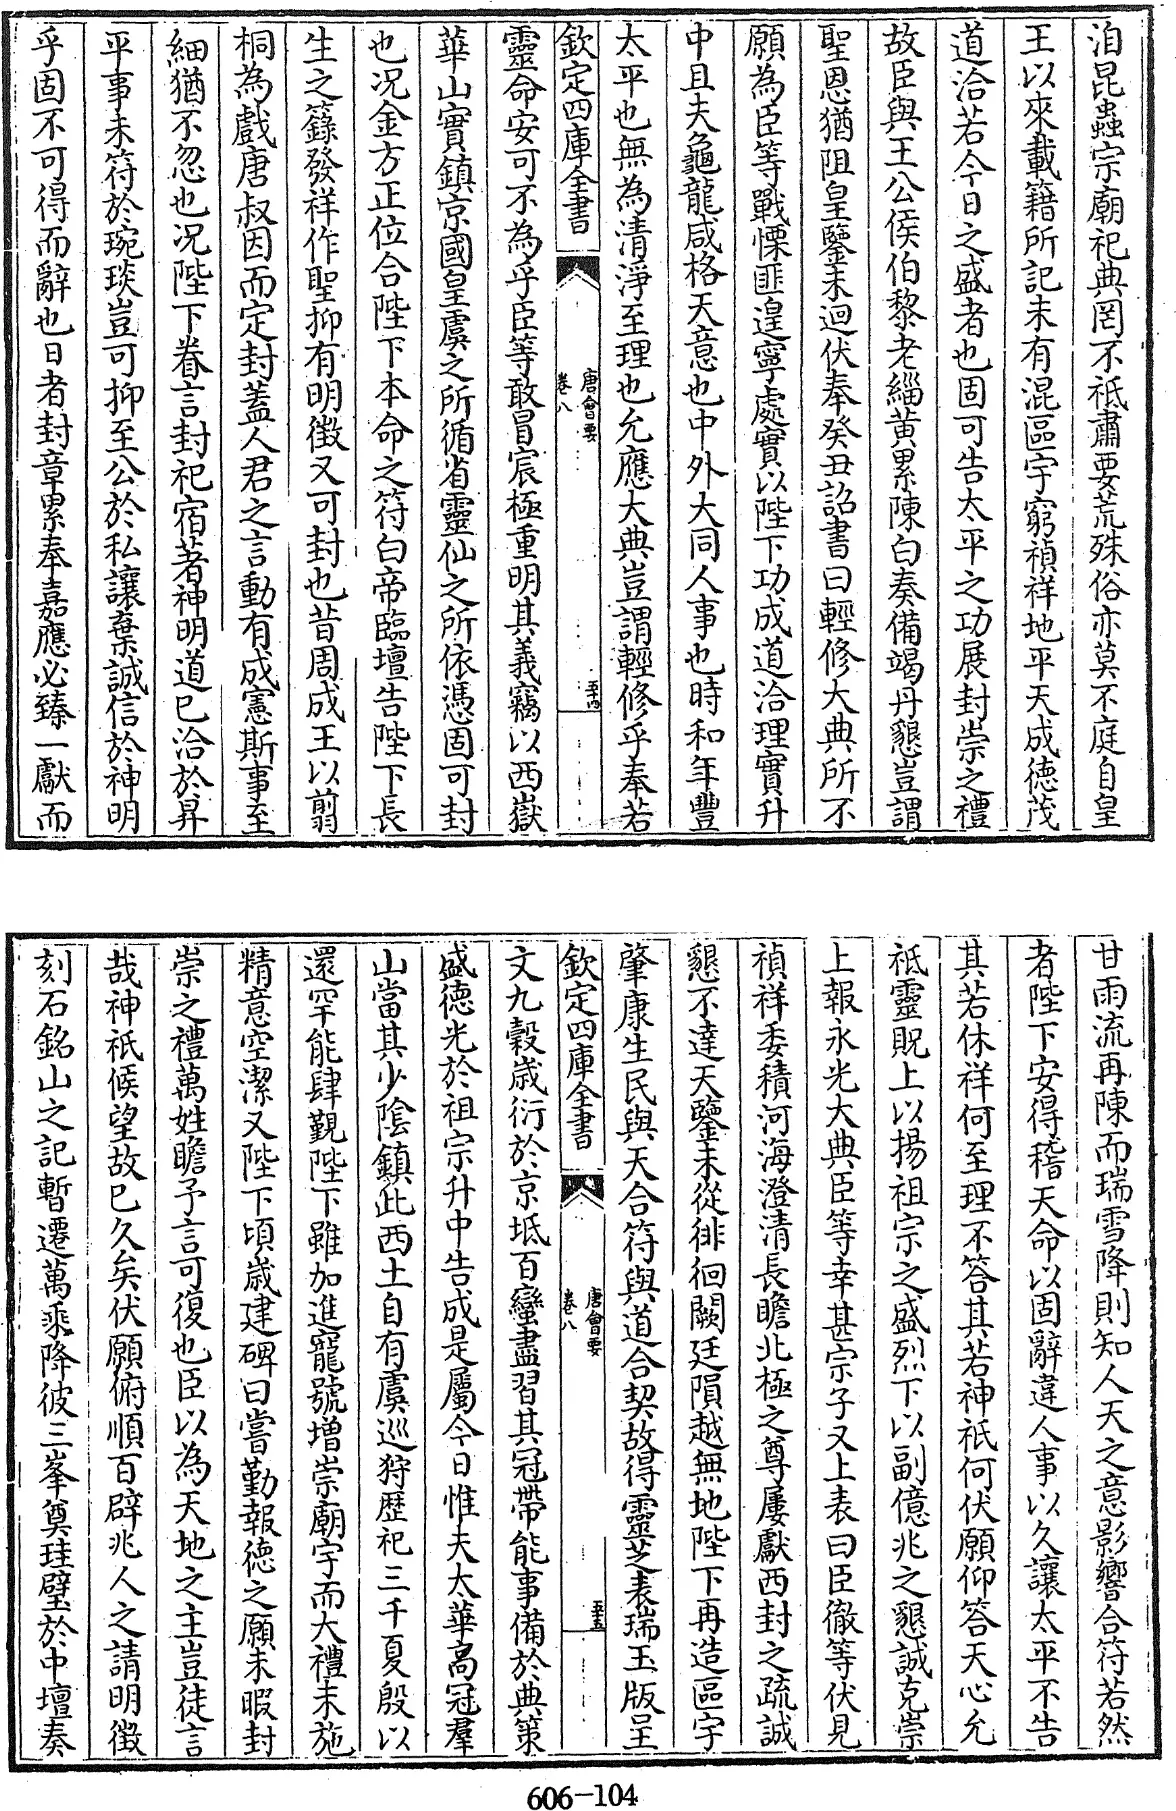 洎昆蟲宗廟祀典罔不祗肅要荒殊俗亦莫不庭自皇
王以來載籍所記未有混區宇窮禎祥地平天成德茂
道洽若今日之盛者也固可告太平之功展封崇之禮
故臣與王公侯伯黎老緇黃累陳白奏備竭丹懇豈謂
聖恩猶阻皇鑒未迴伏奉癸丑詔書曰輕修大典所不
願為臣等戰慄匪遑寧處實以陛下功成道洽理實升
中且夫龜龍咸格天意也中外大同人事也時和年豐
太平也無為清淨至理也允應大典豈謂輕修乎奉若
欽定四庫全書
唐會要
卷八
五十四
靈命安可不為乎臣等敢冒宸極重明其義竊以西嶽
華山實鎮京國皇虞之所循省靈仙之所依憑固可封
也况金方正位合陛下本命之符白帝臨壇告陛下長
生之籙發祥作聖抑有明徵又可封也昔周成王以翦
桐為戲唐叔因而定封蓋人君之言動有成憲斯事至
細猶不忽也况陛下眷言封祀宿著神明道已洽於昇
平事未符於琬琰豈可抑至公於私讓棄誠信於神明
乎固不可得而辭也日者封章累奉嘉應必臻一獻而
甘雨流再陳而瑞雪降則知人天之意影響合符若然
者陛下安得稽天命以固辭違人事以久讓太平不告
其若休祥何至理不答其若神祇何伏願仰答天心允
祗靈貺上以揚祖宗之盛烈下以副億兆之懇誠克崇
上報永光大典臣等幸甚宗子又上表曰臣徹等伏見
禎祥委積河海澄清長瞻北極之尊屢獻西封之疏誠
懇不達天鑒未從徘徊闕廷隕越無地陛下再造區宇
肇康生民與天合符與道合契故得靈芝表瑞玉版呈
欽定四庫全書
唐會要
卷八
五十五
文九穀歲衍於京坻百蠻盡習其冠帶能事備於典策
盛德光於祖宗升中告成是屬今日惟夫太華高冠羣
山當其少陰鎮此西土自有虞巡狩歷祀三千夏殷以
還罕能肆覲陛下雖加進寵號增崇廟宇而大禮未施
精意空潔又陛下頃歲建碑曰嘗勤報德之願未暇封
崇之禮萬姓瞻予言可復也臣以為天地之主豈徒言
哉神祇候望故已久矣伏願俯順百辟兆人之請明徵
刻石銘山之記暫遷萬乘降彼三峯奠珪璧於中壇奏
606-104